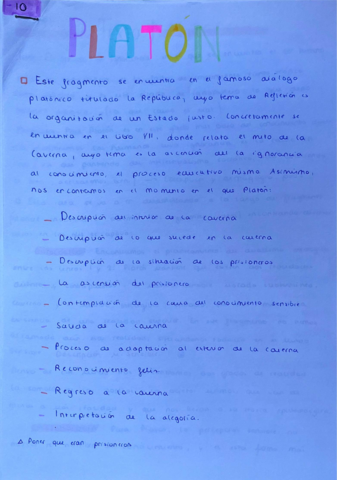 10
PLATÓN
Este fragmento se encuentra en el famoso diálogo
platónico titulado la República, cuyo tema de Reflexión es
la organización de un Estado justo. Concretamente se
encuentra en el libro VII, donde relata el mito de la
Caverna, cuyo tema es la ascensión de la ignorancia
al conocimiento, el proceso educativo mismo. Asimismo,
nos encontramos en el momento en el que Platón:
- Descripción del interior de la caverna
- Descripción de lo que sucede en la caverna
- Descripción de la situación de los prisioneros
- La ascensión del prisionero
- Contemplación de la causa del conocimiento sensible
- Salida de la caverna
- Proceso de adaptación al exterior de la caverna
- Reconocimiento feliz
- Regreso a la caverna
- Interpretación de la alegoría.
que eran prisioneros